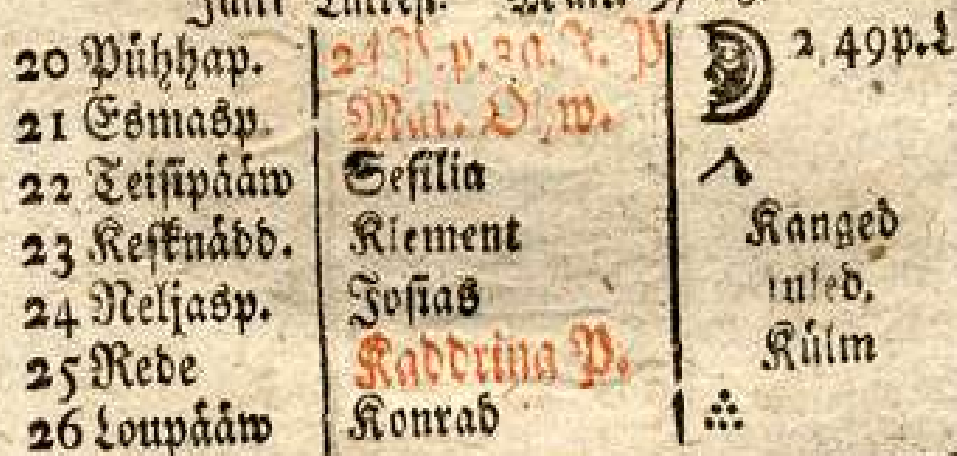 20 Pühhap. 24 P. p. 3a. K. P 2, 49 p. L
21 Esmasp. Mar. Ohw.
22 Teisipääw Sesilia
23 Kesknädd. Klement Kanged
24 Neljasp. Josias
25 Rede Kaddrina P. Külm
26 Loupääw Konrad